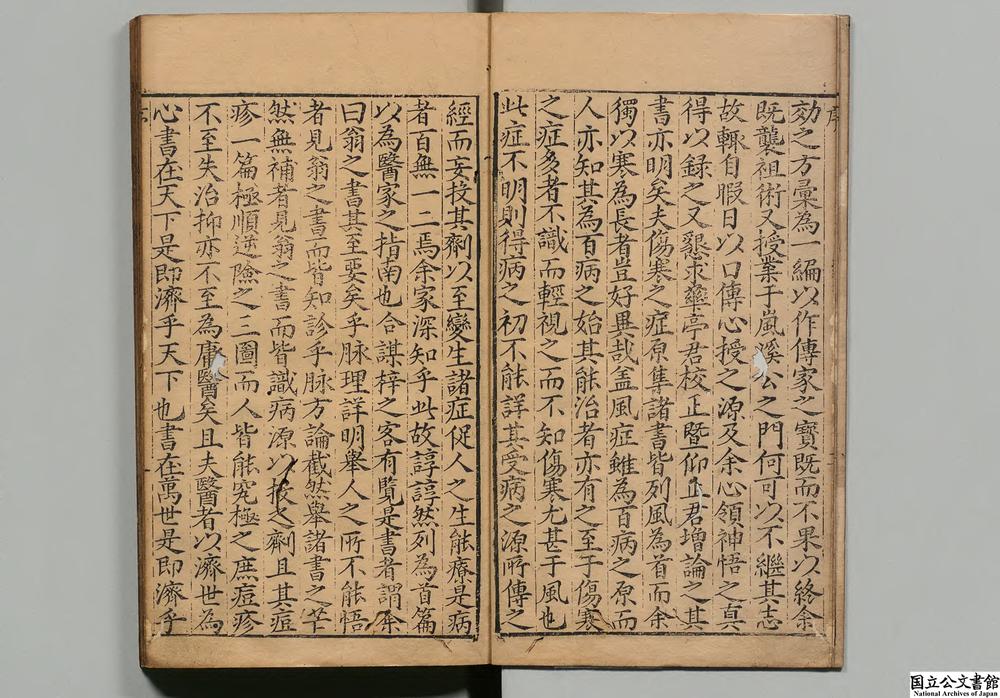 序
効之方彙為一編以作傳家之寶既而不果以終余
既襲祖術又授業于嵐溪公之門何可以不繼其志
故輙自暇日以口傳心授之源及余心領神悟之真
得以録之又懇求亭君校正暨仰正君增論之其
書亦明矣夫傷寒之症原集諸書皆列風為首而余
獨以寒為長者豈好異哉盖風症雖為百病之原而
人亦知其為百病之始其能治者亦有之至于傷寒
之症多者不識而輕視之而不知傷寒尤甚于風也
此症不明則得病之初不能詳其受病之源所傳之
經而妄投其劑以至變生諸症促人之生能療是病
者百無一二焉余家深知乎此故諄諄然列為首篇
以為醫家之指南也合謀梓之客有覽是書者謂余
曰翁之書其至要矣乎脉理詳明舉人之所不能悟
者見翁之書而皆知診乎脉方論截然舉諸書之罕
然無補者見翁之書而皆識病源以投之劑且其痘
疹一篇極順逆險之三圖而人皆能究極之庶痘疹
不至失治抑亦不至為庸醫矣且夫醫者以濟世為
心書在天下是即濟乎天下也書在萬世是即濟乎
国立公文書館
National Archives of Japan